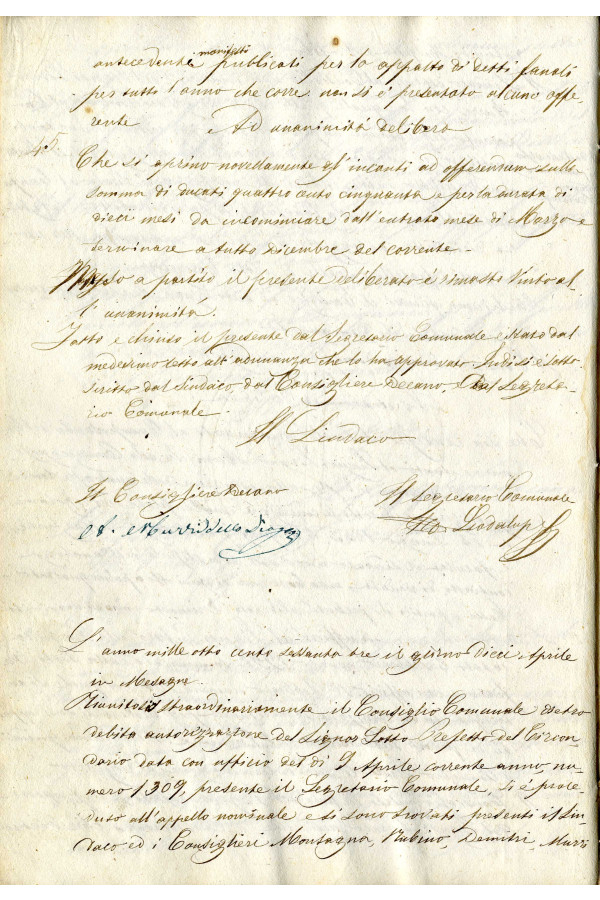 manifesti
antecedente pubblicati per lo appalto di detti fanali
per tutto l'anno che corre non si è presentato alcuno offe-
rente Ad unanimità delibera
45.
Che si aprino novellamente gl'incanti ad offerendum sulla
somma di ducati quattro cento cinquanta e per la durata di
dieci mesi da incominciare dall'entrato mese di Marzo e
terminare a tutto dicembre del corrente.
Messo a partito il presente deliberato è rimasto vinto al-
l'unanimità.
Fatto e chiuso il presente dal Segretario Comunale e stato dal
medesimo letto all'adunanza che lo ha approvato Indi si è sotto-
scritto dal Sindaco dal Consigliere Decano, e dal Segreta-
rio Comunale.
Il Sindaco
Il Consigliere Decano Il Segretario Comunale
L'anno mille otto cento sessanta tre il giorno dieci Aprile
in Mesagne
Riunitosi straordinariamente il Consiglio Comunale dietro
debita autorizzazione del Signor Sotto Prefetto del Circon-
dario data con ufficio del di 9 Aprile corrente anno, nu-
mero 1309, presente il Segretario Comunale, si è proce-
duto all'appello nominale e si sono trovati presenti il Sin-
daco ed i Consiglieri Montagna, Rubino, Demitri, Murri